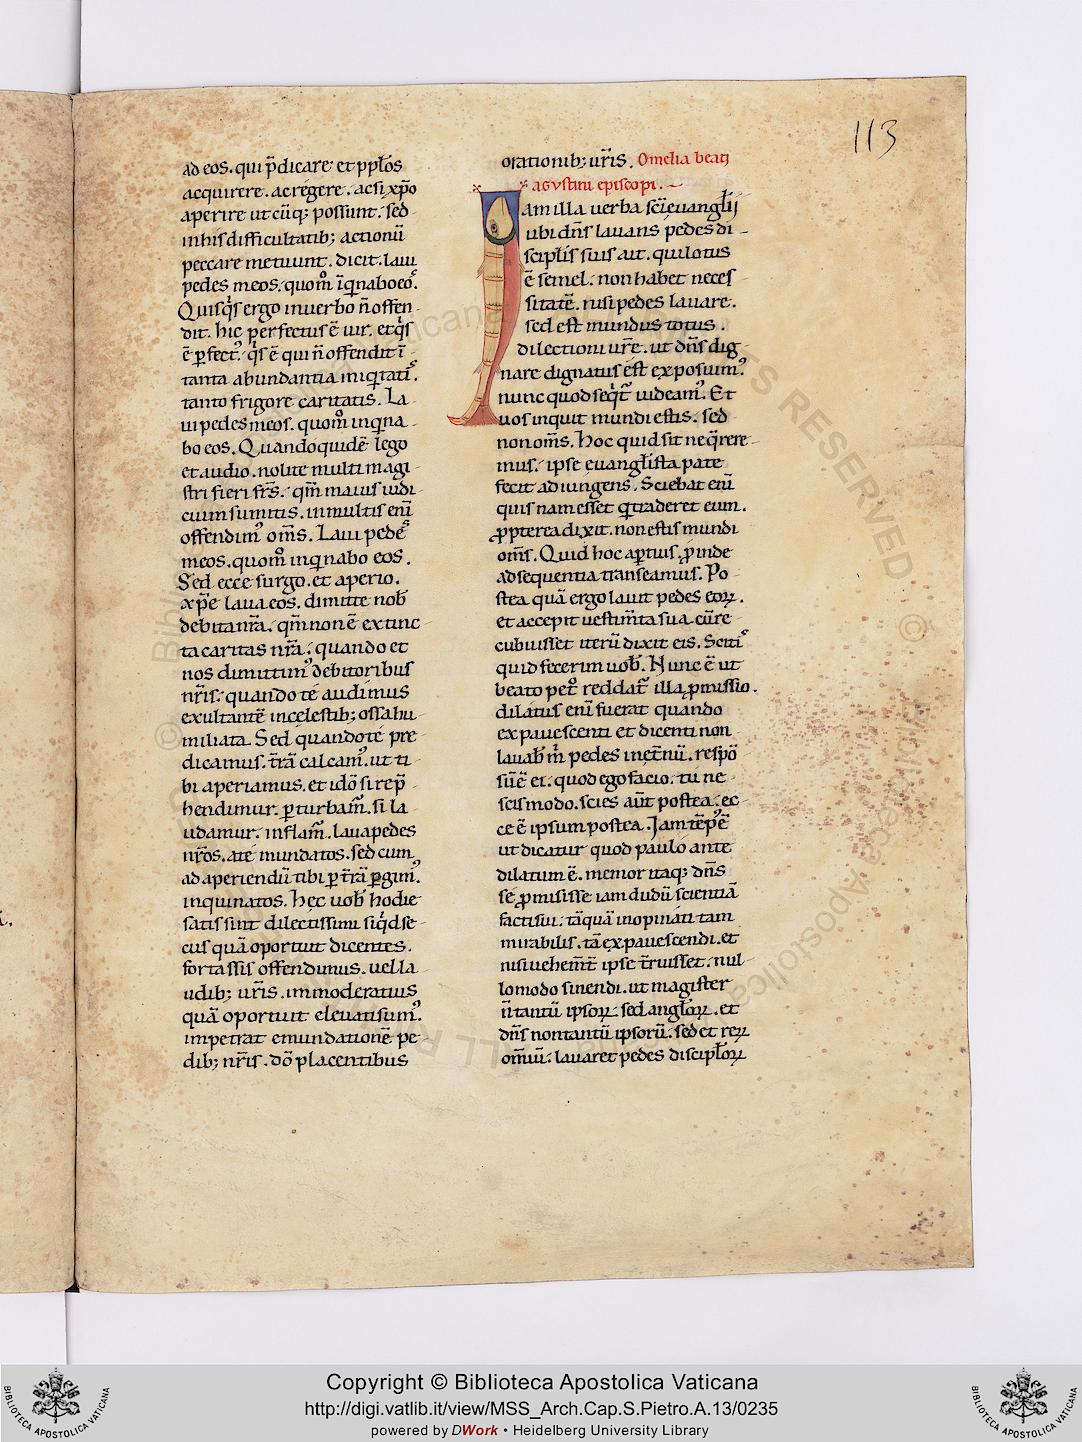 113
ad eos. qui p̄dicare. et pp̄lo̅s
acquirere. ac regere. ac si xp̅o
aperire ut cūq; possunt. sed
in his difficultatib; actionū
peccare metuunt. dicit. laui
pedes meos. quom̊ īq̇nabo eo᾽.
Quisq̇s ergo in uerbo n̄ offen
dit. hic perfectus ē uir. et q̇s
ē ꝑfect᾽. q̇s ē qui n̄ offendit ī
tanta abundantia iniq̇tati᾽.
tanto frigore caritatis. La
ui pedes meos. quom̊ inq̇na
bo eos. Quandoquidē lego
et audio. nolite multi magi
stri fieri fr̄s. qm̄ maius iudi
cium sumitis. in multis eni̅
offendim᾽ om̄s. Laui pede᾽
meos. quom̊ inq̇nabo eos.
Sed ecce surgo. et aperio.
xp̄e laua eos. dimitte nob̄
debita nr̄a. qm̄ non ē extinc
ta caritas nr̄a. quando et
nos dimittim᾽ debitoribus
nr̄is. quando te audimus
exultantē in celestib; ossa hu
miliata. Sed quando te pre
dicamus. tr̄ā calcam᾽. ut ti
bi aperiamus. et idō si rep̄
hendimur. ꝑturbam̄. si la
udamur. inflam̄. laua pedes
nr̄os. ante mundatos. sed cum
ad aperiendū tibi ꝑ tr̄ā ꝑgim᾽.
inquinatos. Hec uob̄ hodie
satis sint dilectissimi siq̇d se
cus quā oportuit dicentes.
fortassis offendimus. uel la
udib; ur̄is. immoderatius
quā oportuit eleuati sum᾽.
impetrat emundationē pe
dib; nr̄is. dō placentibus
orationib; ur̄is. Omelia beati
agustini episcopi.
Iam illa uerba sc̄i euangl̄ij
ubi dn̄s lauans pedes di
scipl̄is suis ait. qui lotus
ē semel. non habet neces
sitatē. nisi pedes lauare.
sed est mundus totus.
dilectioni ur̄e. ut dn̄s dig
nare dignatus est exposuim᾽
nunc quod seq̇t᾽ uideam᾽. Et
uos inquit mundi estis. sed
non om̄s. Hoc quid sit ne q̄rere
mus. ipse euangl̄ista pate
fecit adiungens. Sciebat eni̅
quis nam esset q̇ traderet eum.
ꝓpterea dixit. non estis mundi
om̄s. Quid hoc aꝑtius. ꝓinde
ad sequentia transeamus. Po
stea quā ergo lauit pedes eoꝝ.
et accepit uestim̄ta sua. cū re
cubuisset iterū dixit eis. Sciti᾽
quid fecerim uob̄. Nunc ē ut
beato pet̊ reddat᾽ illa ꝓmissio.
dilatus eni̅ fuerat quando
expauescenti et dicenti non
lauab᾽ m̄ pedes in et̄nū. respō
sū ē ei. quod ego facio. tu ne
scis modo. scies aūt postea. ec
ce ē ipsum postea. Iam tēp᾽ ē
ut dicatur quod paulo ante
dilatum ē. memor itaq; dn̄s
se ꝓmisisse iam dudū scientiā
facti sui. tāquā inopinati tam
mirabilis. tā expauescendi. et
nisi uehem̄t̄ ipse t̄ruisset. nul
lomodo sinendi. ut magister
n̄ tantū ipsoꝝ. sed angl̄oꝝ. et
dn̄s non tantū ipsorū. sed et reꝝ
om̄iū. lauaret pedes discipl̄oꝝ
Copyright © Biblioteca Apostolica Vaticana
http://digi.vatlib.it/view/MSS_Arch.Cap.S.Pietro.A.13/0235
powered by DWork • Heidelberg University Library
BIBLIOTECA APOSTOLICA VATICANA
BIBLIOTECA APOSTOLICA VATICANA